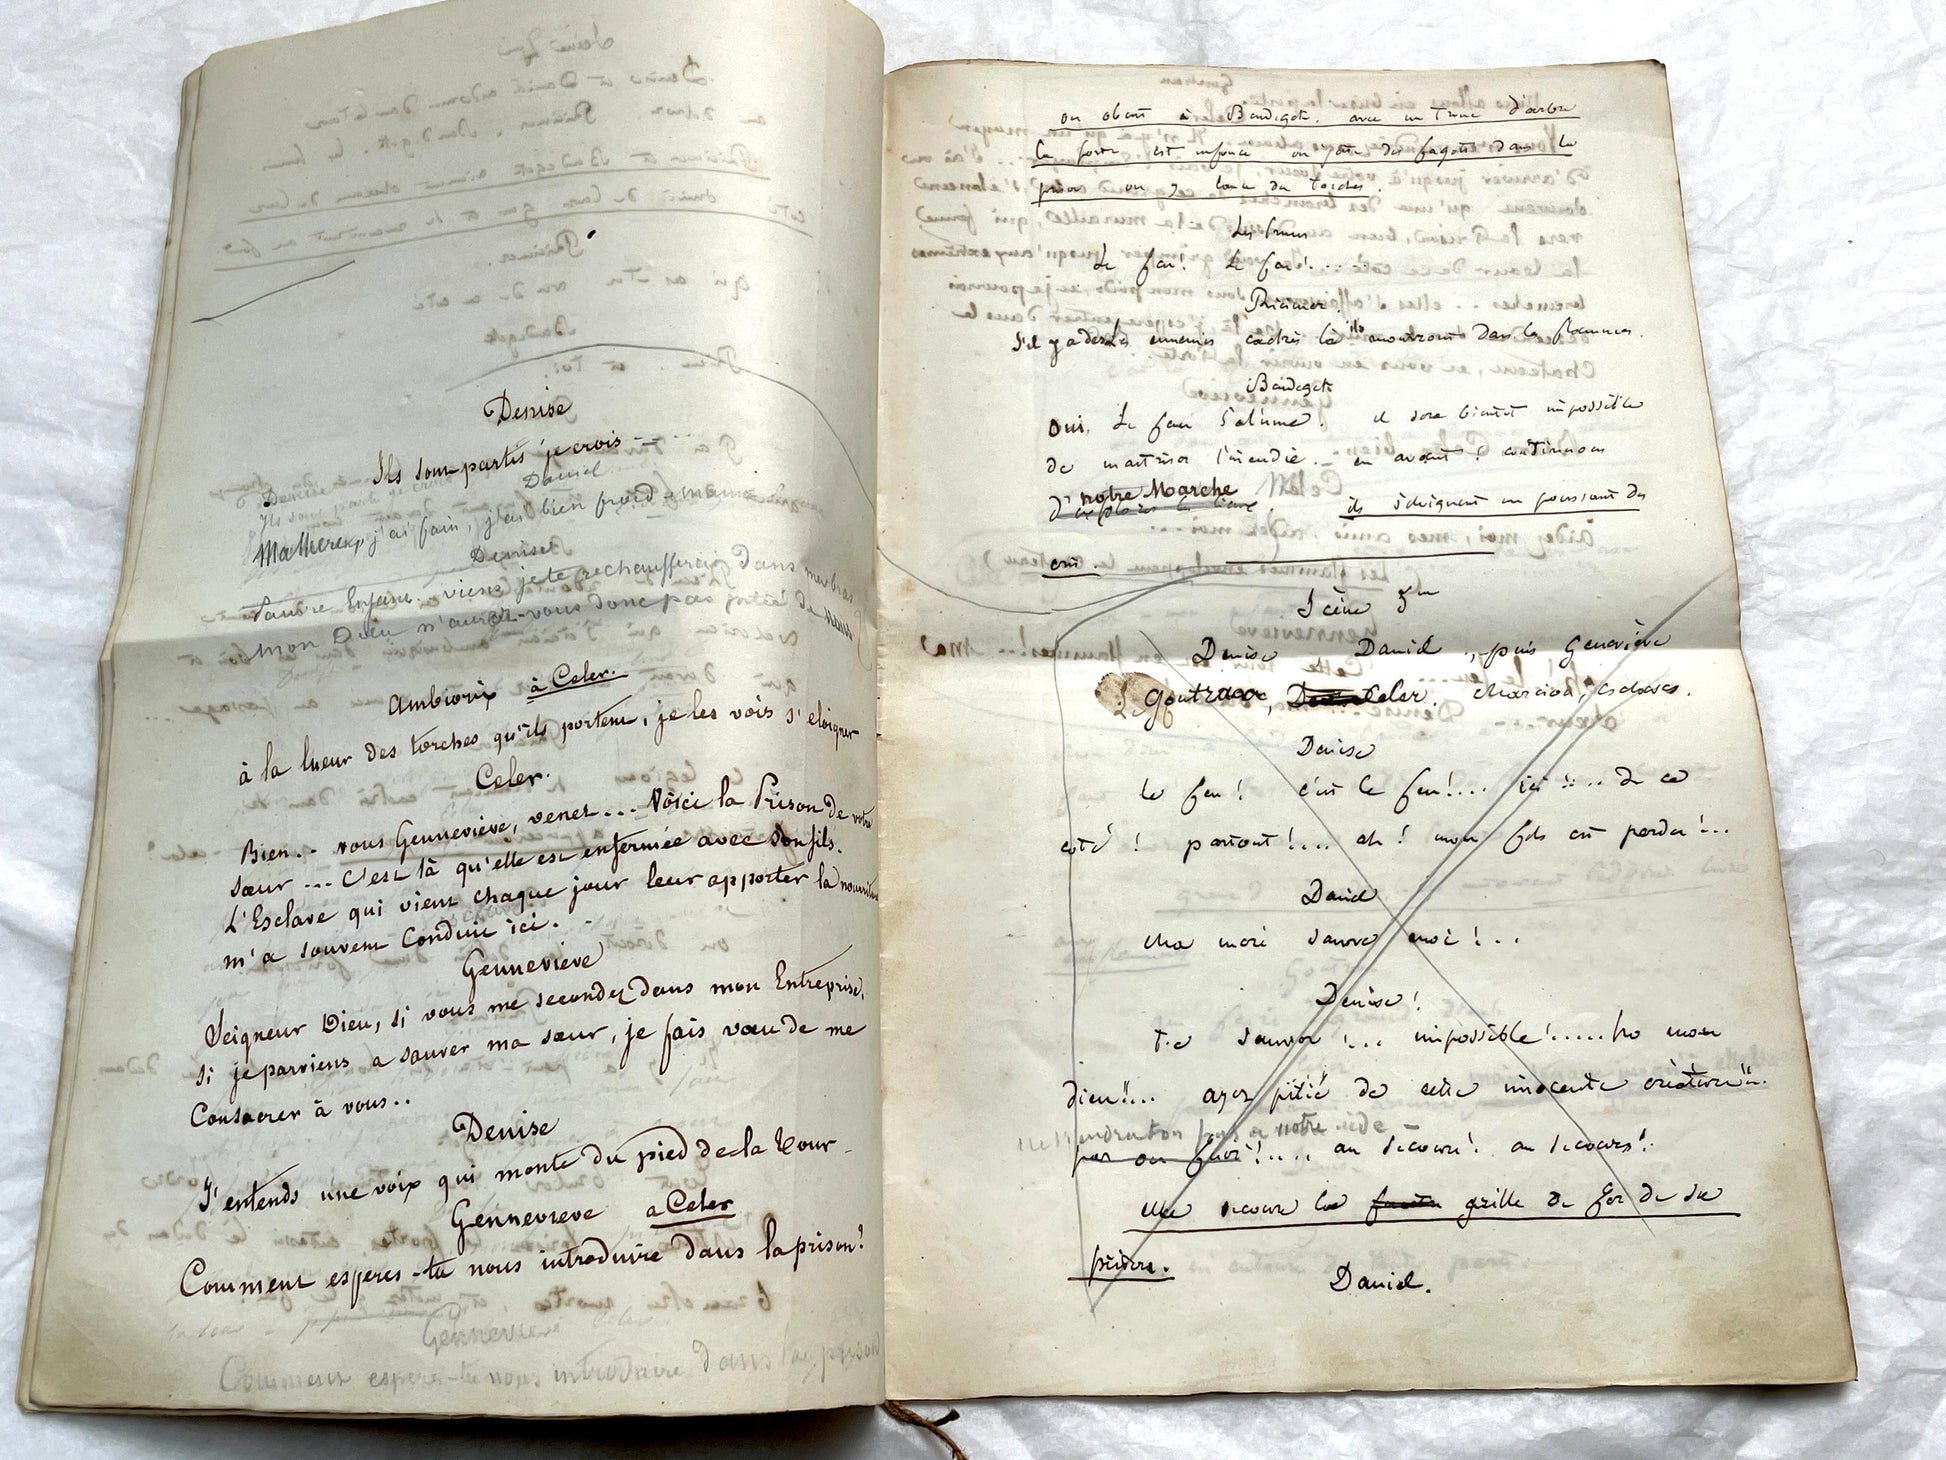 Denise
Ils sont partis je crois
Daniel
Ma Mere, j'ai faim, j'ai bien froid
Denise
Pauvre Enfant. viens je te rechaufferai dans mes bras
mon Dieu n'aurez-vous donc pas pitié de nous
Ambiorix à Celer.
à la lueur des torches qu'ils portent, je les vois s'eloigner
Celer.
Bien.. vous Genneviève, venez... Voici la Prison de votre
sœur... C'est là qu'elle est enfermée avec son fils.
L'Esclave qui vient chaque jour leur apporter la nourriture
m'a souvent Conduit ici.
Genneviève
Seigneur Dieu, si vous me secondez dans mon Entreprise,
si je parviens a sauver ma sœur, je fais vœu de me
Consacrer à vous..
Denise
J'entends une voix qui monte du pied de la tour
Gennevieve a Celer
Comment esperes-tu nous introduire dans la prison?
Gennevieve
Comment esperes-tu nous introduire dans la prison
on obeit à Baudegote. avec un tronc d'arbre
la porte est enfoncé on jette des fagots dans la
prison on y lance des torches.
Les francs
Le feu! Le feu!...
Ricimer.
S'il y a des ennemis cachés là ils mourront dans les flammes.
Baudegote
oui, Le feu s'alume. il sera bientôt impossible
de maitriser l'incendie. en avant! continuons
notre Marche
ils s'éloignent en poussant des
cris
Scène 5me
Denise Daniel, puis Geneviève
Goutran, Celer. esclaves.
Denise
le feu! c'est le feu!... ici!... de ce
coté! partout!... ah! mon fils est perdu!...
Daniel
Ma mere sauve moi!...
Denise!
te sauver!... impossible!..... ho mon
dieu!!... ayez pitié de cette innocente créature!!..
ne viendra t on pas a notre aide -
par ou fuir!!.... au secours! au secours!
elle secoue la grille de fer de sa
prison.
Daniel.